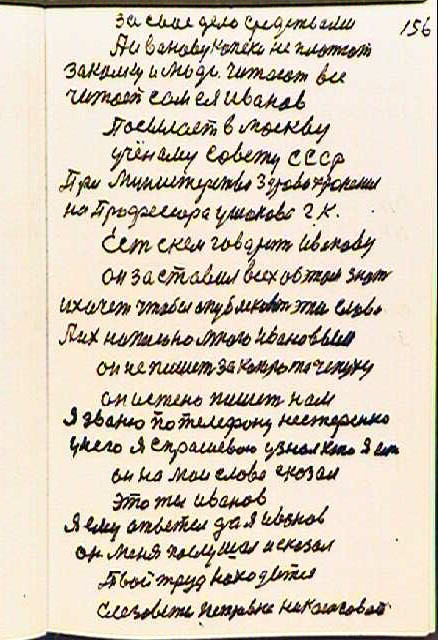 156
за свае дело средствами
А Иванову копеки не платют
закаику и люди. Читают все
читает сам ся Иванов
Посылает в Москву
учёному Совету СССР
При Министерства Здравохронения
на Професора ушакова Г.К.
Ест скем говарит Иванову
он заставил всех обтом знат
и хочет чтобы опубликоват эти слова
А их написано много Ивановым
он не пишет за какуюто чепуху
он истено пишет нам
Я званю по телефону нестеренко
унего Я спрашеваю узнал кто Я ест
он на маи слова сказал
это ты Иванов
Я ему ответил да Я иванов
он меня послушал и сказал
Твой труд находится
Елезовете Петровне на